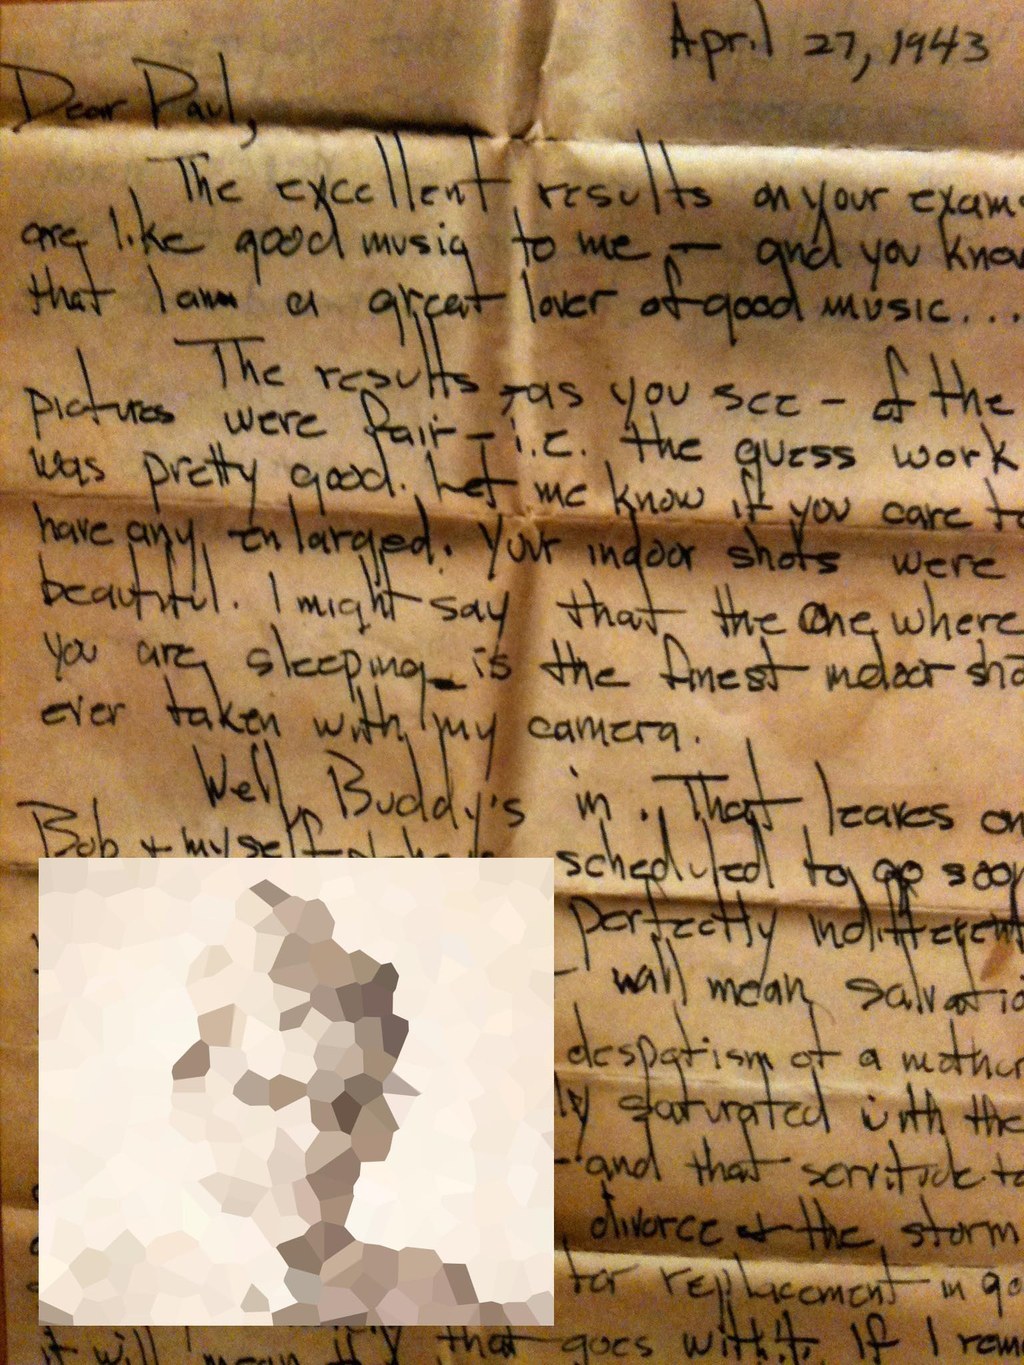 April 27, 1943
Dear Paul,
The excellent results on your exams
are like good music to me — and you know
that I am a great lover of good music...
The results - as you see - of the
pictures were fair - i.e. the guess work
was pretty good. Let me know if you care to
have any enlarged. Your indoor shots were
beautiful. I might say that the one where
you are sleeping is the finest indoor
ever taken with my camera.
Well, Buddy's in. That leaves
Bob & myself scheduled to go
perfectly indifferent
- will mean
despotism of a mother
saturated with the
- and that servitude to
divorce & the storm
for replacement in
it will mean that goes with it. If I